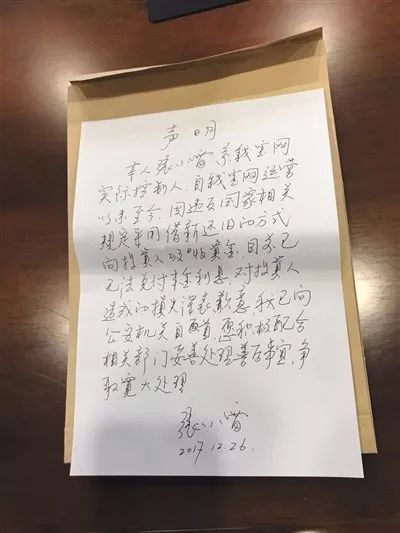 声 明
本人張小雷系钱宝网
实际控制人,自钱宝网运营
以来至今,因违反国家相关
规定采用借新还旧的方式
向投资人吸收资金,目前已
无法兑付本金利息,对投资人
造成的损失深表歉意,我已向
公安机关自首,愿积极配合
相关部门妥善处理善后事宜,争
取宽大处理
張小雷
2017.12.26.